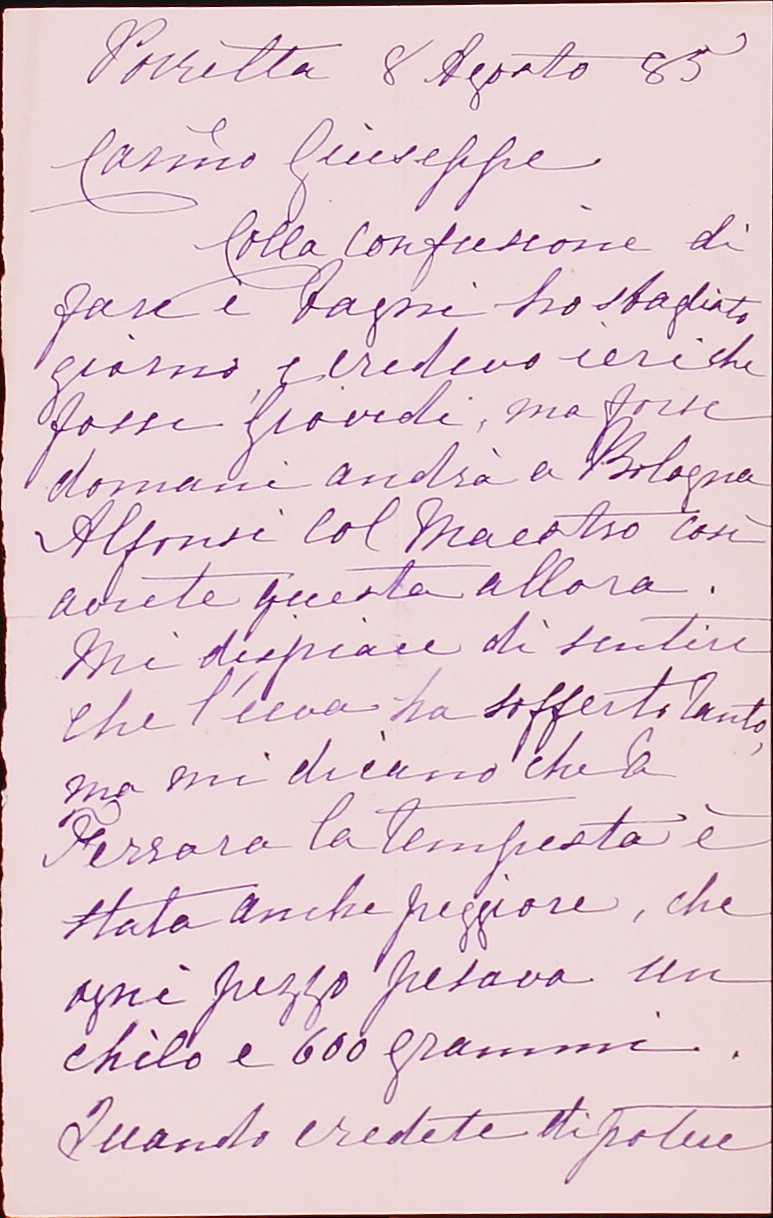 Porretta 8 Agosto 85
Carino Giuseppe
Colla confusione di
fare i bagni ho sbagliato
giorno, e credevo ieri che
fosse Giovedi, ma forse
domani andrà a Bologna
Alfonsi col Maestro così
avrete questa allora.
Mi dispiace di sentire
che l'uva ha sofferto tanto,
ma mi dicano che a
Ferrara la tempesta è
stata anche peggiore, che
ogni pezzo pesava un
chilo e 600 grammi.
Quando credete di potere